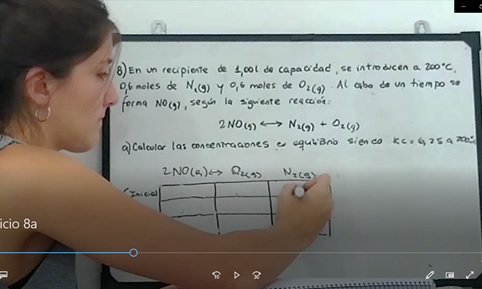 8) En un recipiente de 1,00l de capacidad, se introducen a 200°C,
0,6 moles de N₂(g) y 0,6 moles de O₂(g). Al cabo de un tiempo se
forma NO(g), según la siguiente reacción:
2NO(g) ↔ N₂(g) + O₂(g)
a) Calcular las concentraciones equilibrio siendo KC = 6,25 a 200°C
2NO(g) ↔ O₂(g) N₂(g)
Inicial
icio 8a